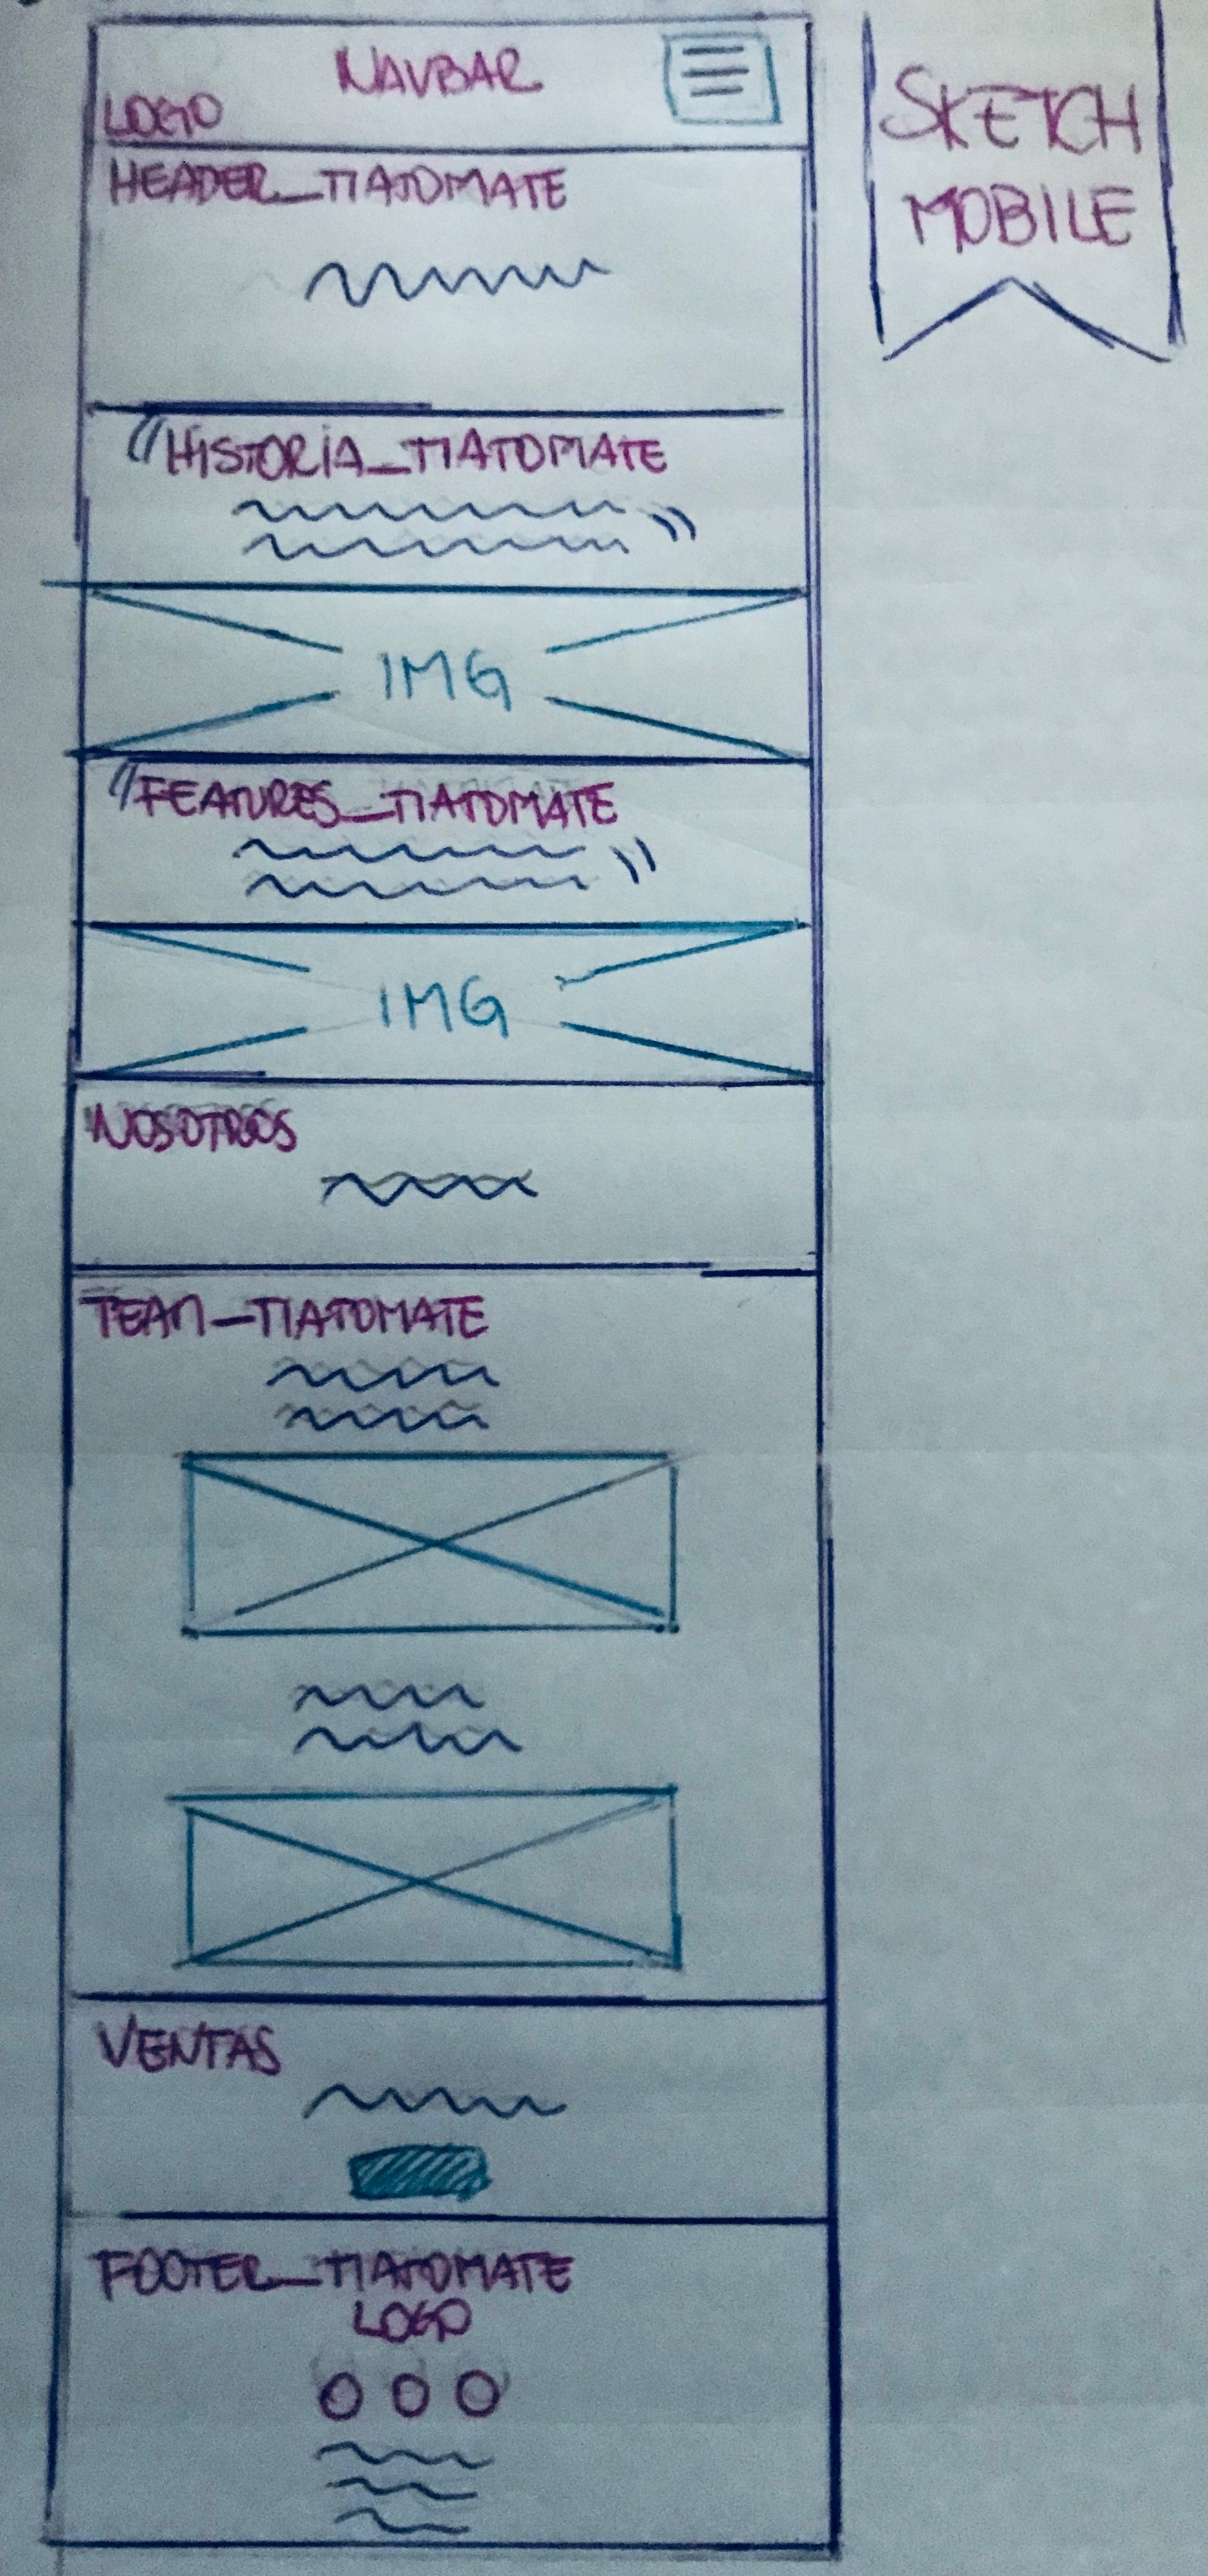 NAVBAR
LOGO
SKETCH
MOBILE
HEADER_TIATOMATE
"HISTORIA_TIATOMATE
"
IMG
"FEATURES_TIATOMATE
"
IMG
NOSOTROS
TEAM_TIATOMATE
VENTAS
FOOTER_TIATOMATE
LOGO